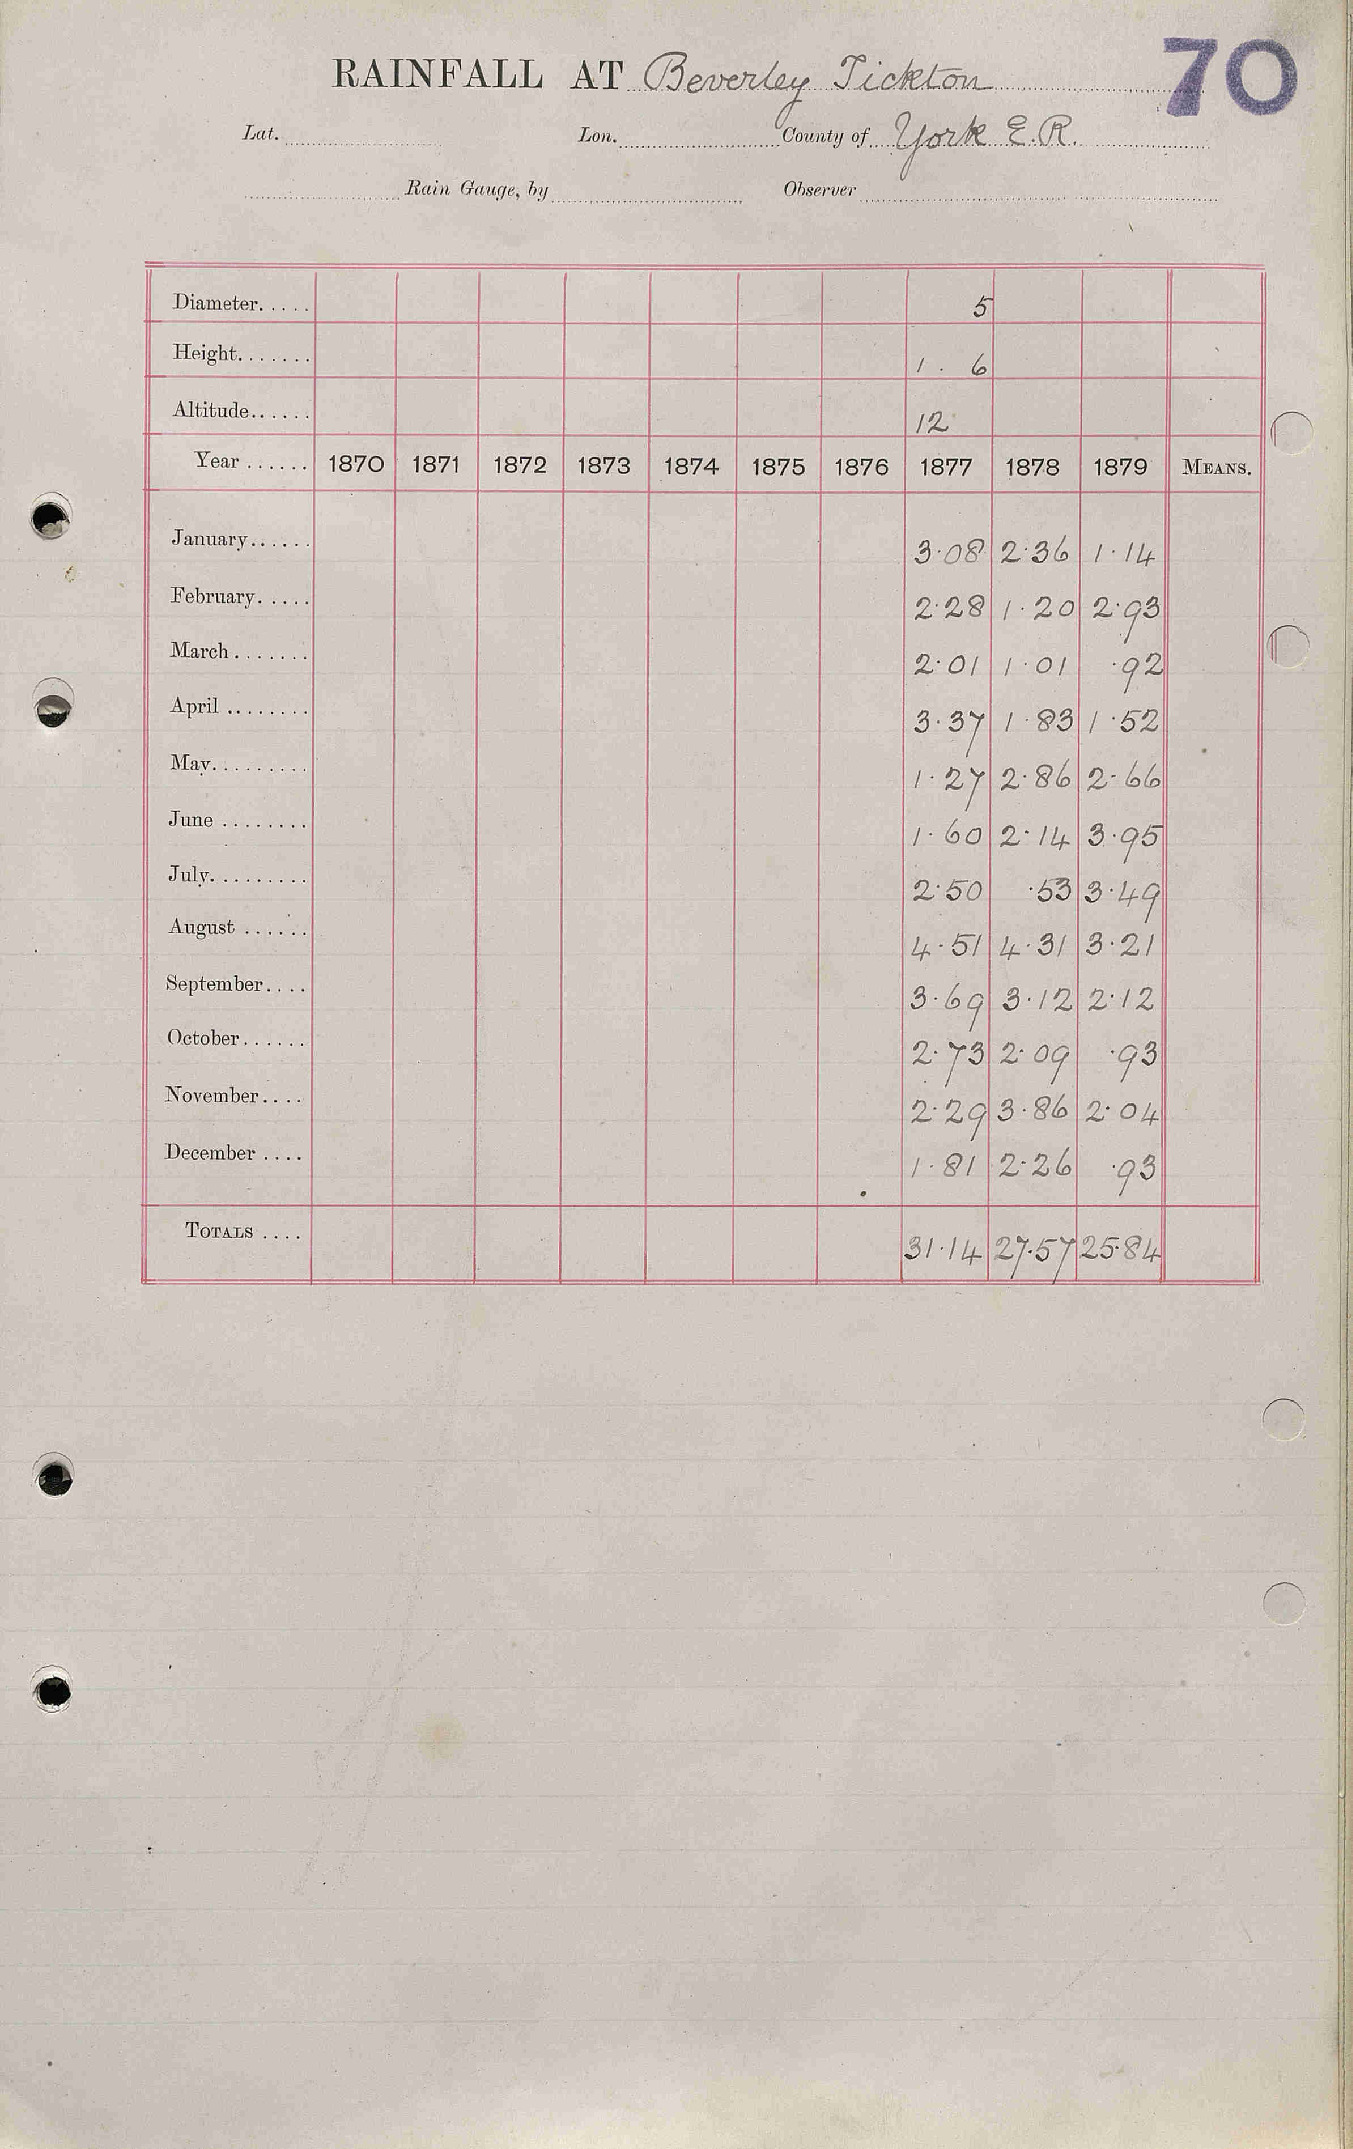 70
RAINFALL AT Beverley Tickton
Lat. Lon. County of York E.R.
Rain Gauge, by Observer
Diameter..... 5
Height....... 1 . 6
Altitude...... 12
Year ...... 1870 1871 1872 1873 1874 1875 1876 1877 1878 1879 MEANS.
January...... 3·08 2·36 1·14
February..... 2·28 1·20 2·93
March....... 2·01 1·01 ·92
April ........ 3·37 1·83 1·52
May......... 1·27 2·86 2·66
June ........ 1·60 2·14 3·95
July......... 2·50 ·53 3·49
August ...... 4·51 4·31 3·21
September.... 3·69 3·12 2·12
October...... 2·73 2·09 ·93
November.... 2·29 3·86 2·04
December .... 1·81 2·26 ·93
TOTALS .... 31·14 27·57 25·84